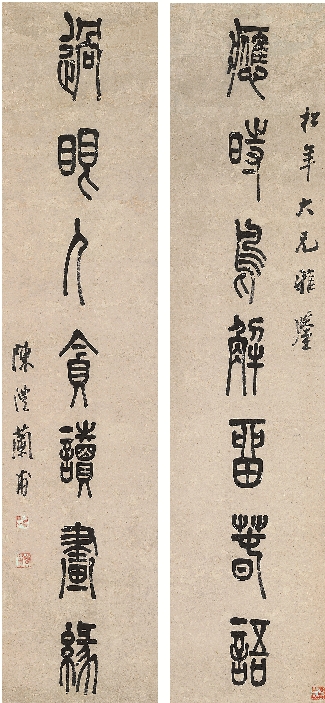 松年大兄雅鑒
應時鳥解留春語
過眼人貪讀畫緣
陳澧蘭甫